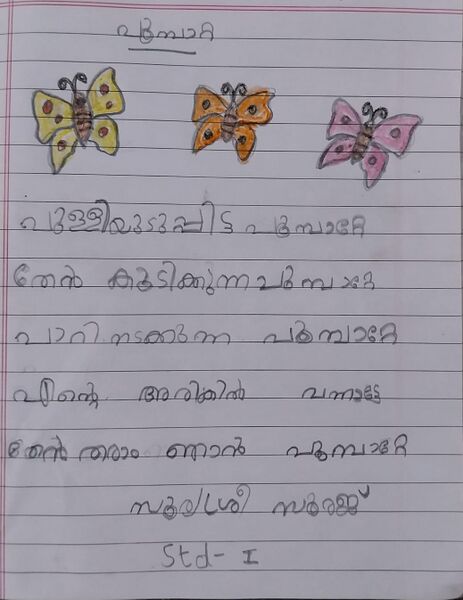 പൂമ്പാറ്റ
പുള്ളിയുടുപ്പിട്ട പൂമ്പാറ്റേ
തേൻ കുടിക്കുന്ന പൂമ്പാറ്റേ
പാറി നടക്കുന്ന പൂമ്പാറ്റേ
എന്റെ അരികിൽ വന്നാട്ടേ
തേൻ തരാം ഞാൻ പൂമ്പാറ്റേ
സൂര്യശ്രീ സൂരജ്
Std- I